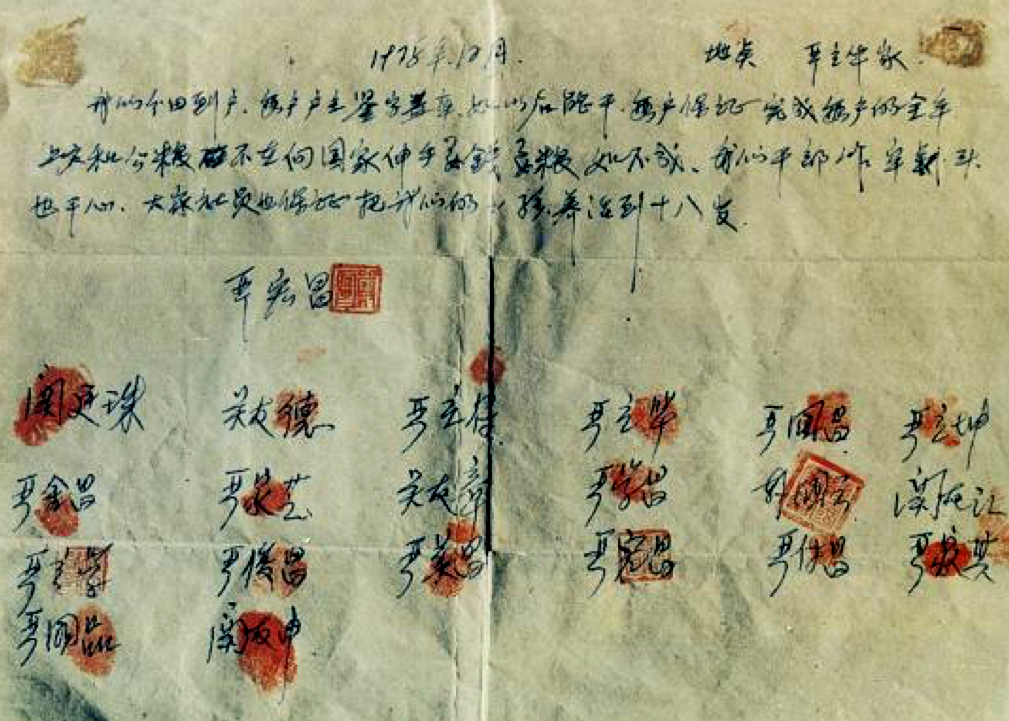 1978年12月. 地点 严立华家.
我们分田到户,每户户主签字盖章,如以后能干,每户保证完成每户的全年
上交和公粮不在向国家伸手要钱要粮如不成、我们干部作牢刹头
也干心、大家社员也保证把我们的小孩养活到十八岁.
严宏昌
关廷珠 关友德 严立符 严立华 严国昌 严立坤
严金昌 严家芝 关友章 严学昌 韩国云 关友江
严立学 严俊昌 严美昌 严宏昌 严付昌 严家其
严国品 关友申